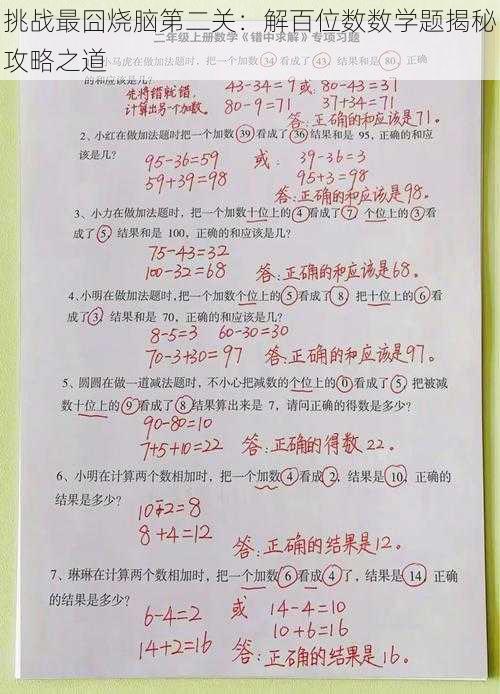 挑战最囧烧脑第二关：解百位数数学题揭秘
攻略之道
二年级上册数学《错中求解》专项习题
小马虎在做加法题时，把一个加数 34 看成了 43，结果和是 80，正确
的和应该是几？
43-34=9 或：80-43=37
先将错就错，
计算出另一个加数。
80-9=71 37+34=71
答：正确的和应该是71。
2、小红在做加法题时把一个加数 39 看成了 36 结果和是 95，正确的和应
该是几？
95-36=59 或：39-36=3
59+39=98 95+3=98
答：正确的和应该是98。
3、小力在做加法题时，把一个加数十位上的 4 看成了 7 个位上的 3 看
成了 5，结果和是 100，正确的和应该是几？
75-43=32
100-32=68 答：正确的和应该是68。
4、小明在做加法题时，把一个加数个位上的 5 看成了 8 把十位上的 6 看
成了 3，结果和是 70，正确的和应该是几？
8-5=3 60-30=30
70-3+30=97 答：正确的和应该是97。
5、圆圆在做一道减法题时，不小心把减数的个位上的 0 看成了 5，把被减
数十位上的 9 看成了 8 结果算出来是 7，请问正确的得数是多少？
90-80=10
7+5+10=22 答：正确的得数22。
6、小明在计算两个数相加时，把一个加数 4 看成 2，结果是 10，正确的
结果是多少？
10-2=8
8+4=12
答：正确的结果是12。
7、琳琳在计算两个数相加时，把一个加数 6 看成 4 了，结果是 14，正确
的结果是多少？
6-4=2 或 14-4=10
14+2=16 10+6=16
答：正确的结果是16。